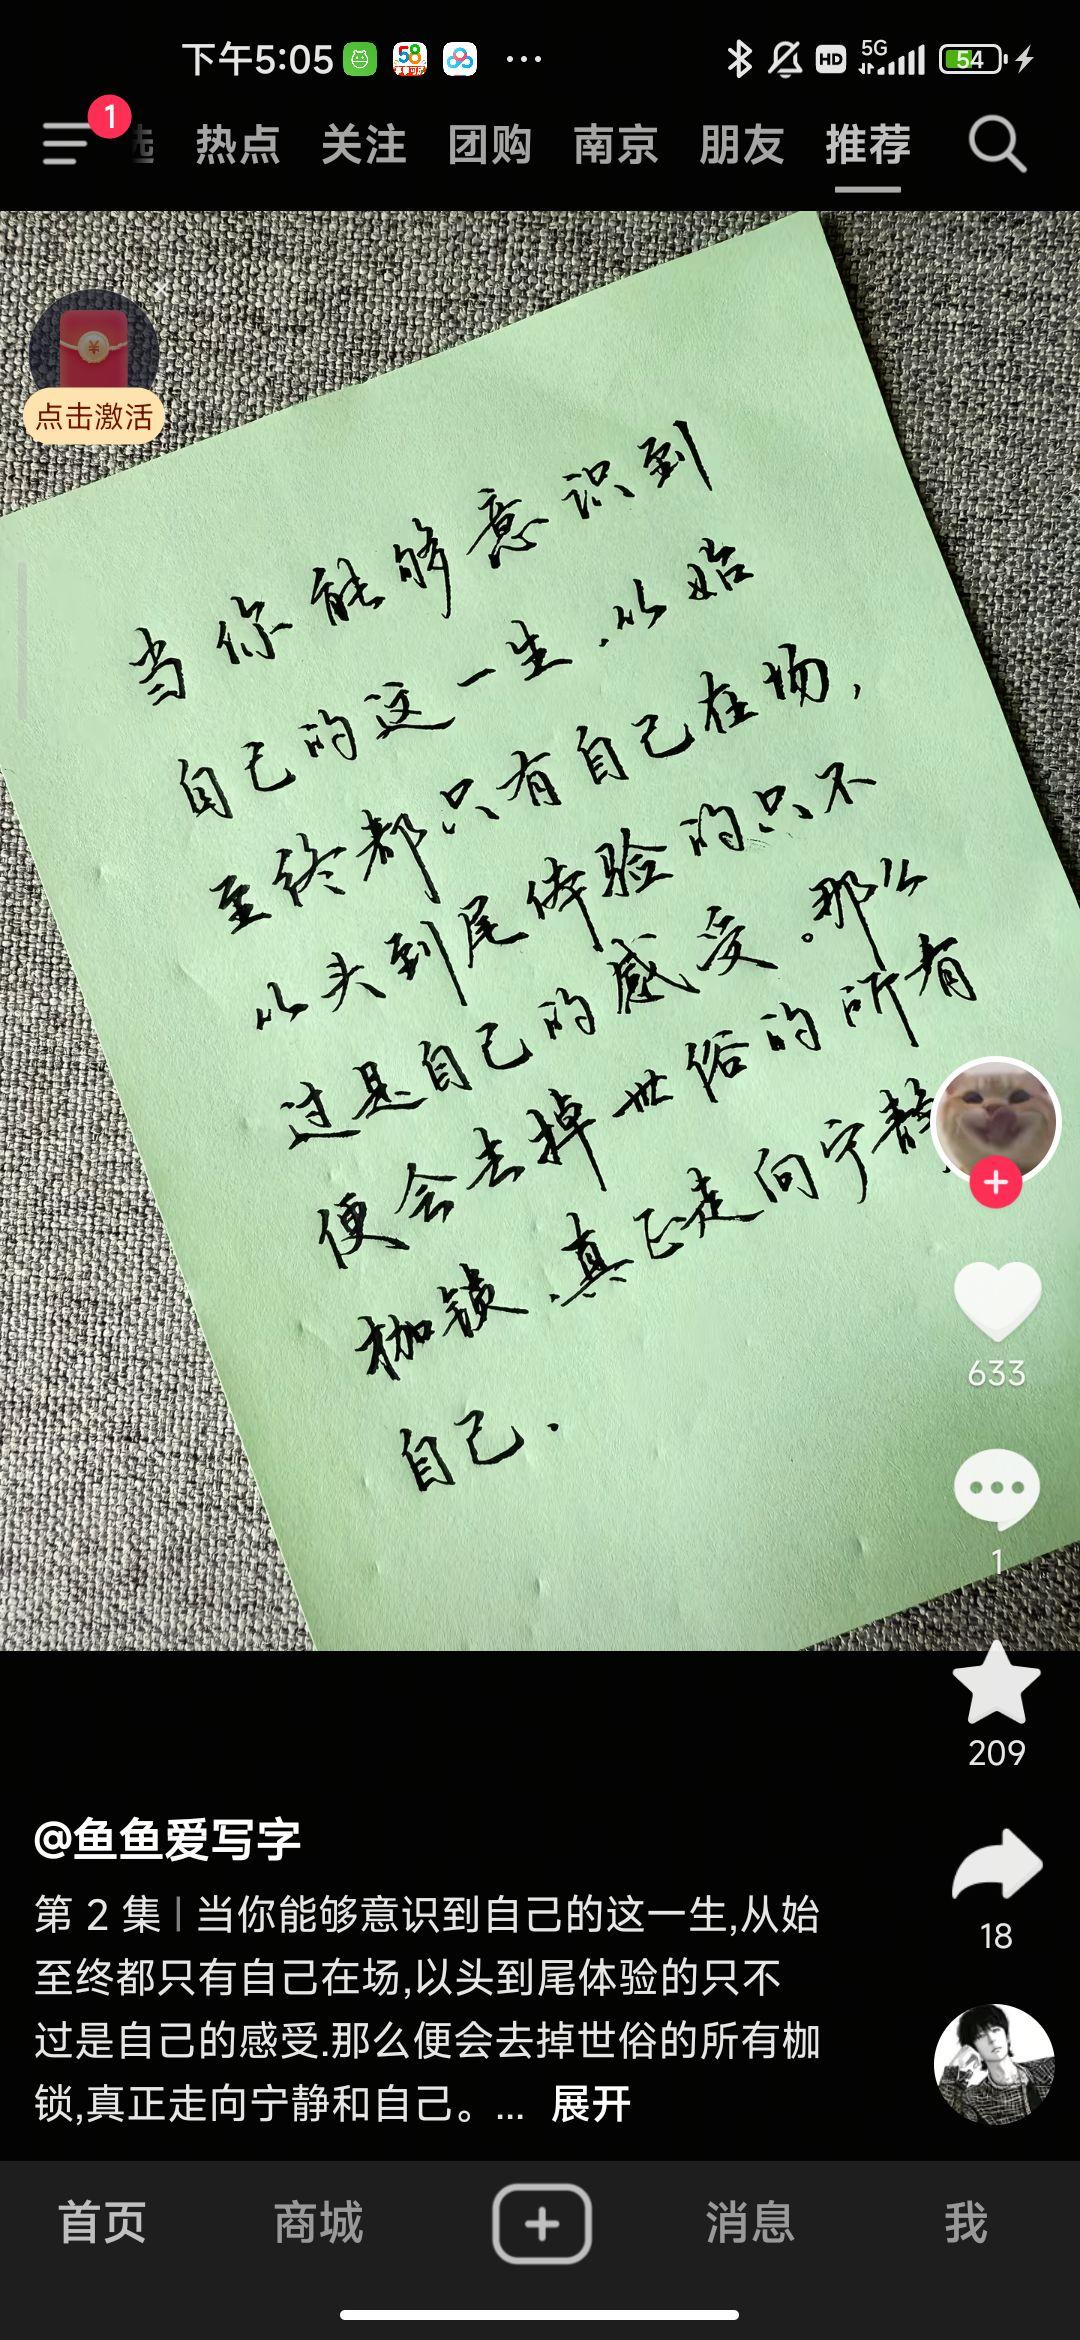 下午5:05
58
HD
5G
54
1
热点 关注 团购 南京 朋友 推荐
点击激活
当你能够意识到
自己的这一生.从始
至终都只有自己在场，
从头到尾体验的只不
过是自己的感受。那么
便会去掉世俗的所有
枷锁.真正走向宁静
自己.
633
1
209
18
@鱼鱼爱写字
第 2 集 | 当你能够意识到自己的这一生,从始
至终都只有自己在场,以头到尾体验的只不
过是自己的感受.那么便会去掉世俗的所有枷
锁,真正走向宁静和自己。... 展开
首页 商城 消息 我